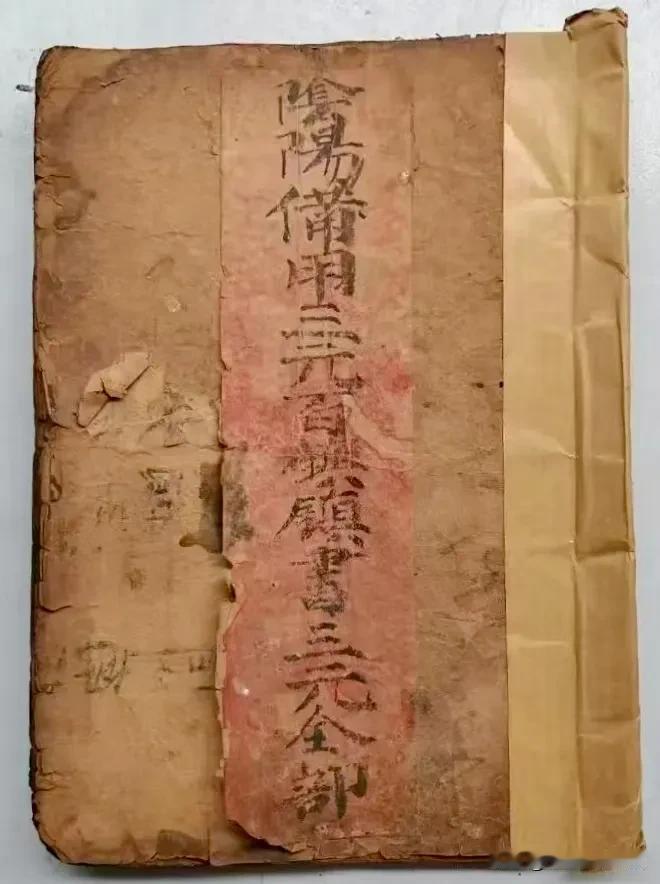 陰陽備用三元百鎮書三元全部